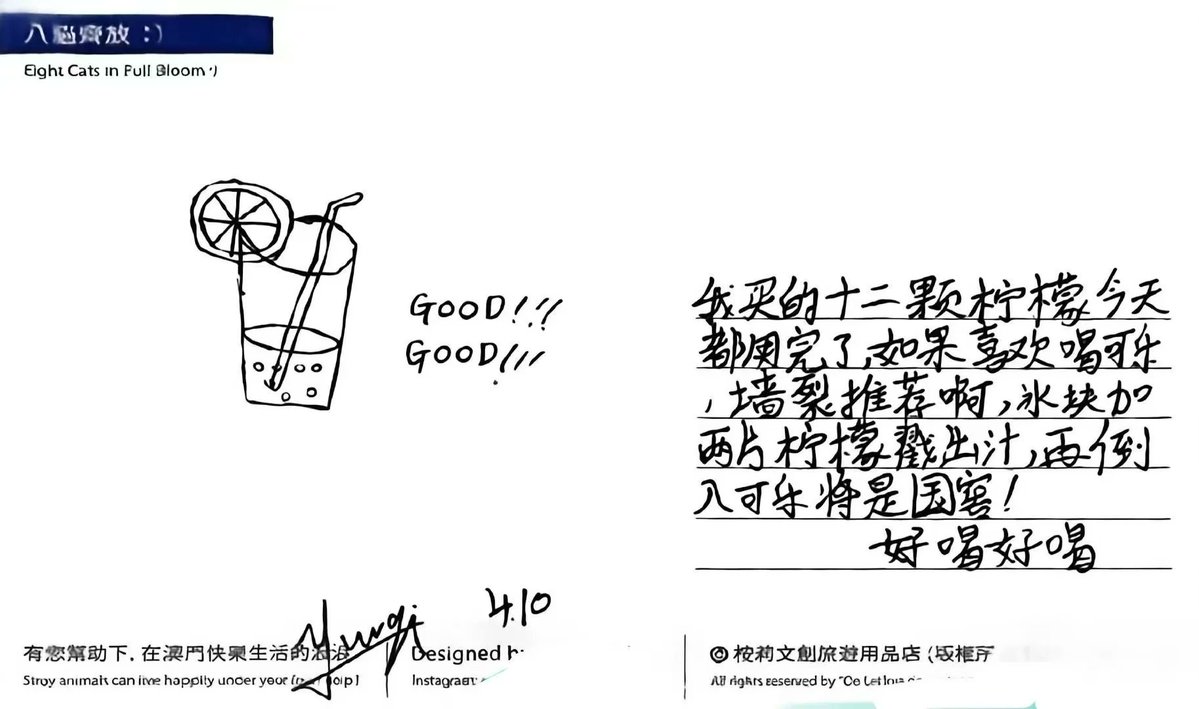 八貓齊放 :)
Eight Cats in Full Bloom :)
GOOD!!!
GOOD!!!
我买的十二颗柠檬今天
都用完了,如果喜欢喝可乐
,墙裂推荐啊,冰块加
两片柠檬戳出汁,再倒
入可乐将是国窖!
好喝好喝
4.10
Yunqi
有您幫助下, 在澳門快樂生活的流浪
Stray animals can live happily under your
Designed by
Instagram:
桉莉文創旅遊用品店 (版權所
All rights reserved by